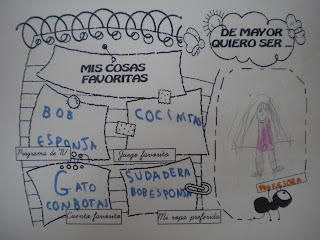 MIS COSAS
FAVORITAS
DE MAYOR
QUIERO SER ...
BOB
ESPONJA
Programa de TV
COCINITAS
Juego favorito
GATO
CONBOTAS
Cuento favorito
SUDADERA
BOBESPONSA
Mi ropa preferida
PROFESORA